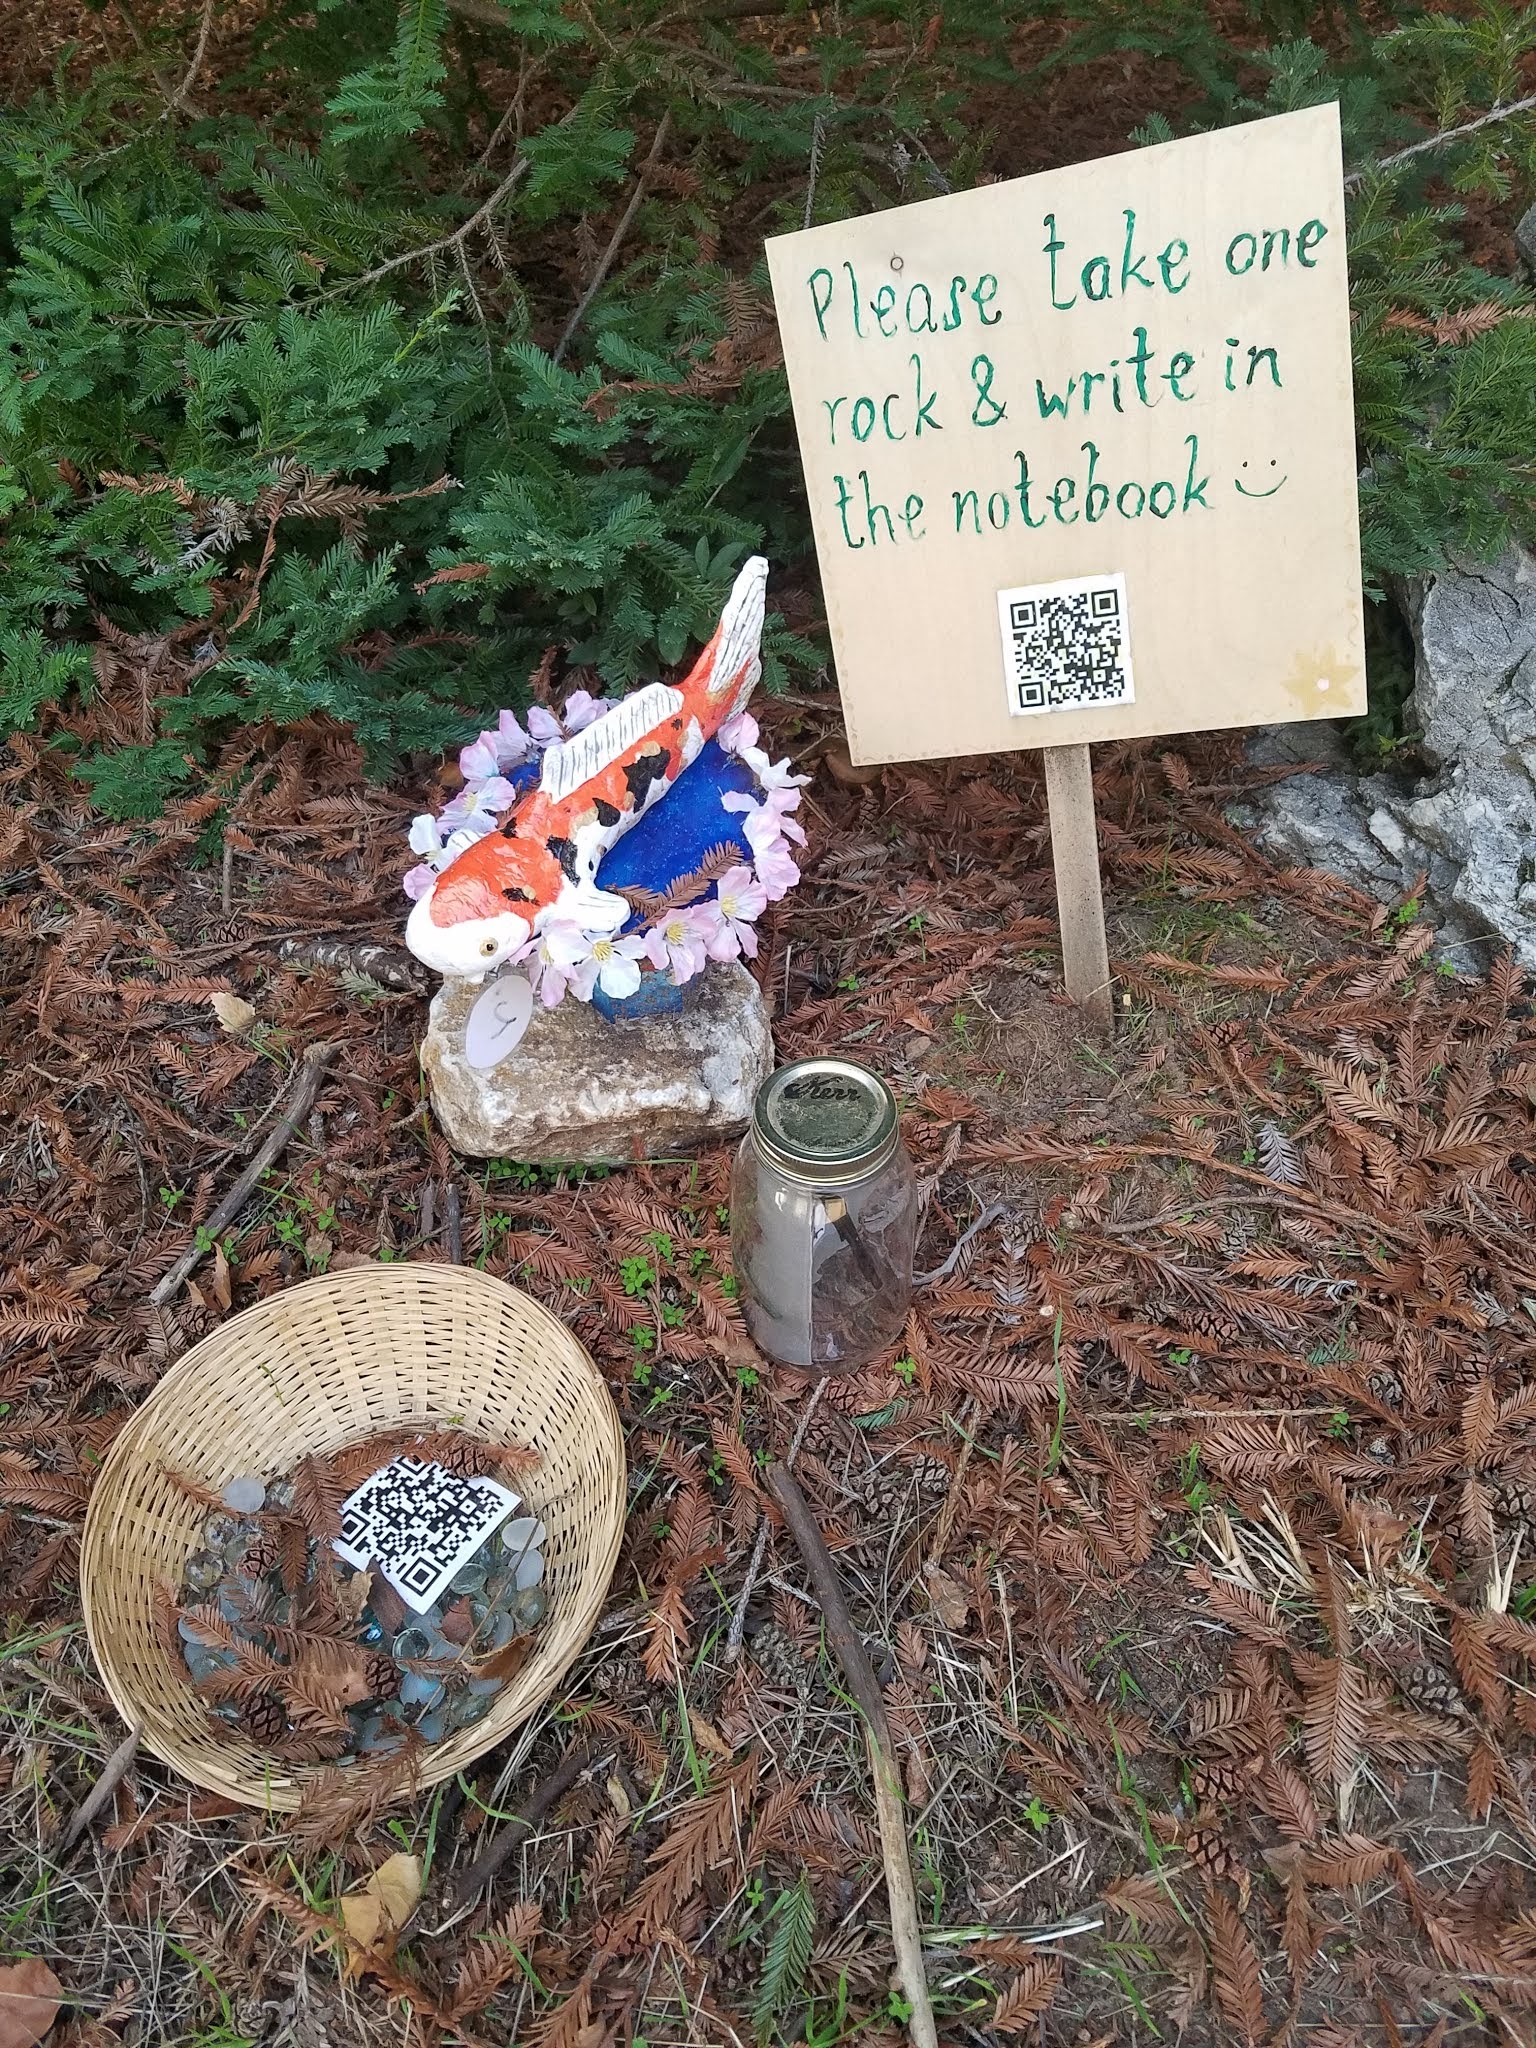 Please take one
rock & write in
the notebook
Kerr